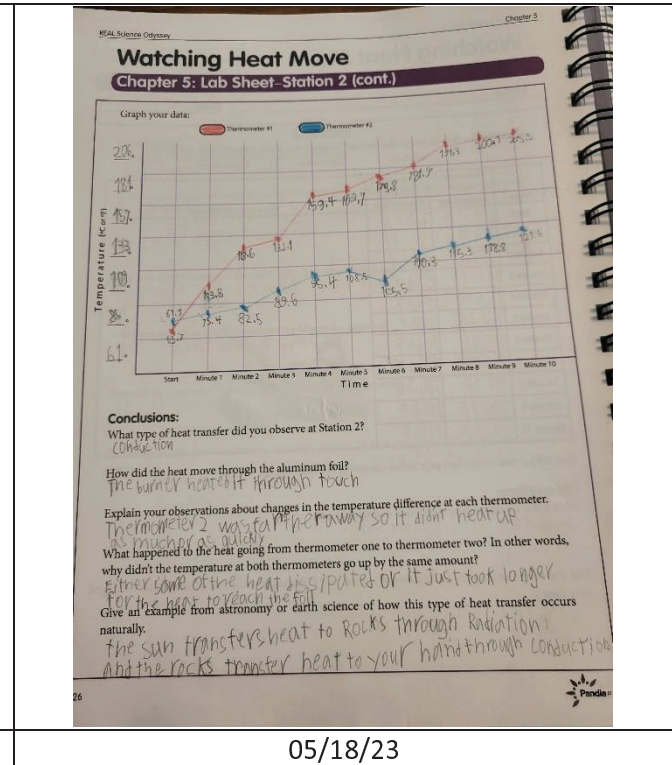 REAL Science Odyssey
Chapter 5
Watching Heat Move
Chapter 5: Lab Sheet–Station 2 (cont.)
Graph your data:
Thermometer #1
Thermometer #2
206.
181.
157.
133.
109.
85.
61.
Temperature (°C or °F)
67.1
65.7
93.8
75.4
82.5
133.1
89.6
159.4
95.4
163.7
108.5
105.5
181.9
205.3
Start
Minute 1
Minute 2
Minute 3
Minute 4
Minute 5
Minute 6
Minute 7
Minute 8
Minute 9
Minute 10
Time
Conclusions:
What type of heat transfer did you observe at Station 2?
conduction
How did the heat move through the aluminum foil?
The burner heated it through touch
Explain your observations about changes in the temperature difference at each thermometer.
Thermometer 2 was farther away so it didnt heat up
as much or as quickly
What happened to the heat going from thermometer one to thermometer two? In other words,
why didn't the temperature at both thermometers go up by the same amount?
Either some of the heat dissipated or it just took longer
for the heat to reach the foil
Give an example from astronomy or earth science of how this type of heat transfer occurs
naturally.
the sun transfers heat to Rocks through Radiation
and the rocks transfer heat to your hand through conduction
26
Pandia
05/18/23